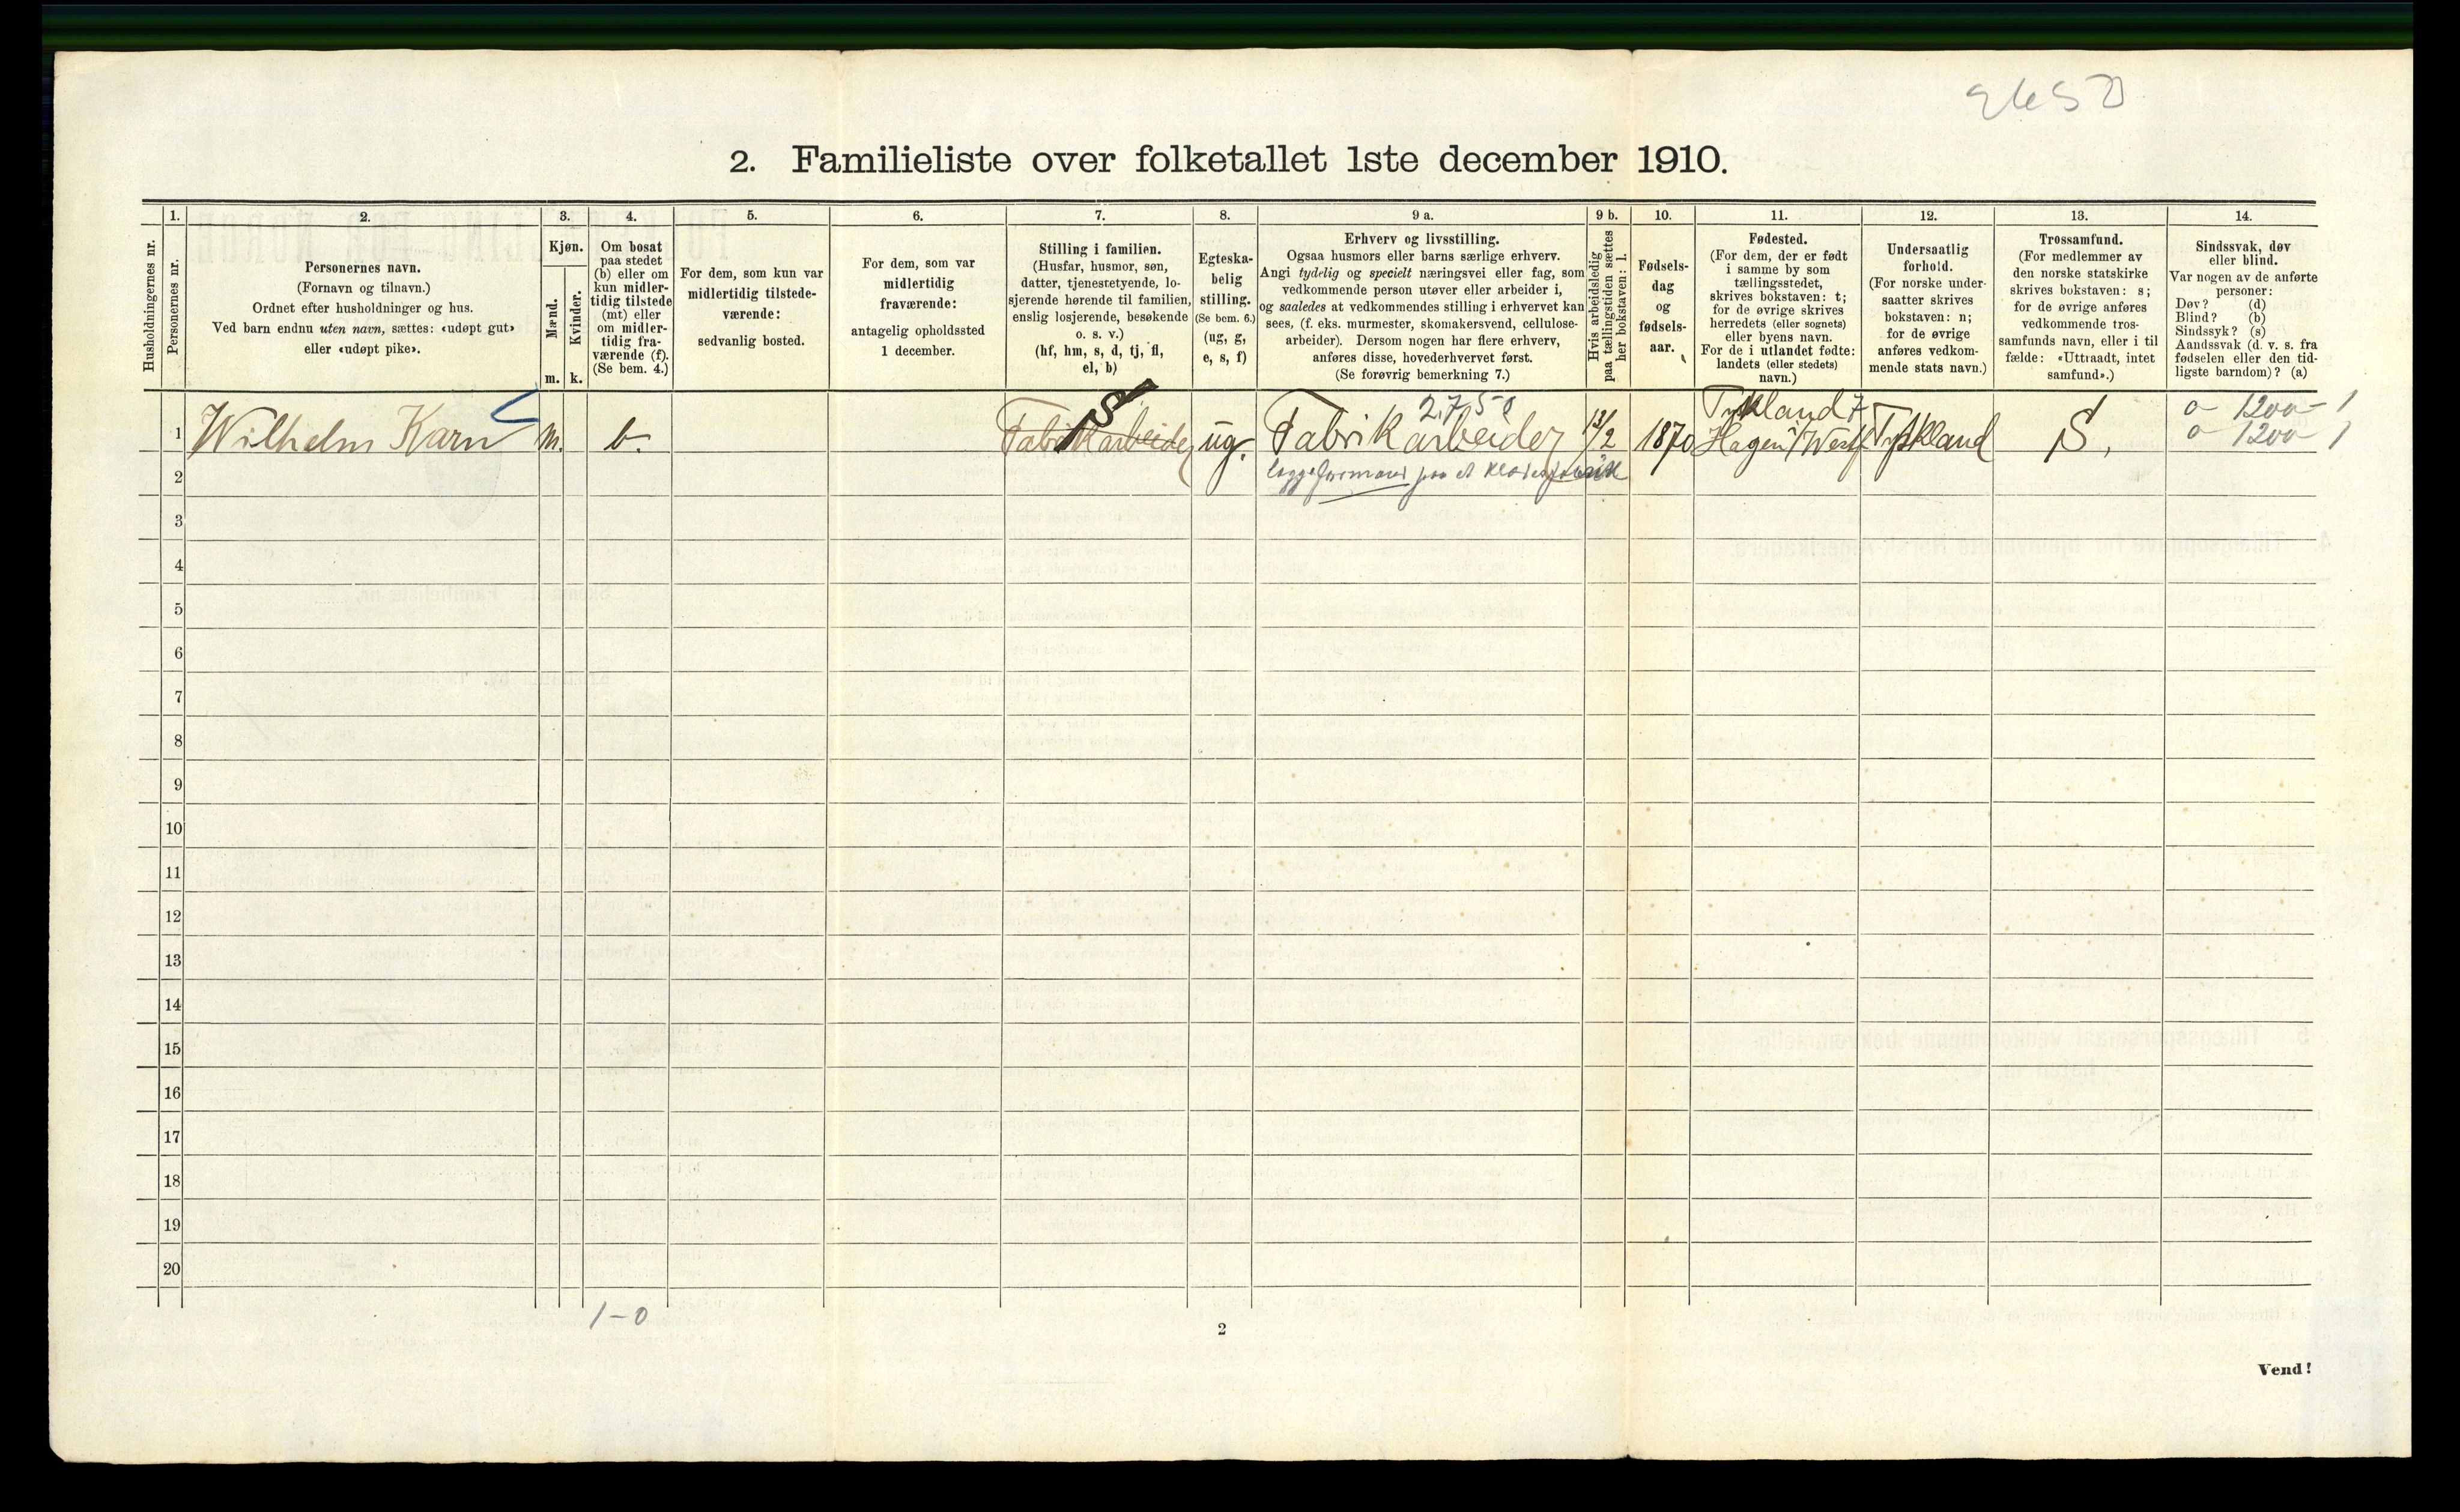 2. Familieliste over folketallet 1ste december 1910.
1. 2. 3. 4. 5. 6. 7. 8. 9 a. 9 b. 10. 11. 12. 13. 14.
Husholdningernes nr.
Personernes nr.
Personernes navn.
(Fornavn og tilnavn.)
Ordnet efter husholdninger og hus.
Ved barn endnu uten navn, sættes: «udøpt gut»
eller «udøpt pike».
Kjøn.
Mænd.
Kvinder.
m. k.
Om bosat
paa stedet
(b) eller om
kun midler-
tidig tilstede
(mt) eller
om midler-
tidig fra-
værende (f).
(Se bem. 4.)
For dem, som kun var
midlertidig tilstede-
værende:
sedvanlig bosted.
For dem, som var
midlertidig
fraværende:
antagelig opholdssted
1 december.
Stilling i familien.
(Husfar, husmor, søn,
datter, tjenestetyende, lo-
sjerende hørende til familien,
enslig losjerende, besøkende
o. s. v.)
(hf, hm, s, d, tj, fl,
el, b)
Egteska-
belig
stilling.
(Se bem. 6.)
(ug, g,
e, s, f)
Erhverv og livsstilling.
Ogsaa husmors eller barns særlige erhverv.
Angi tydelig og specielt næringsvei eller fag, som
vedkommende person utøver eller arbeider i,
og saaledes at vedkommendes stilling i erhvervet kan
sees, (f. eks. murmester, skomakersvend, cellulose-
arbeider). Dersom nogen har flere erhverv,
anføres disse, hovederhvervet først.
(Se forøvrig bemerkning 7.)
Hvis arbeidsledig
paa tællingstiden sættes
her bokstaven: l.
Fødsels-
dag
og
fødsels-
aar.
Fødested.
(For dem, der er født
i samme by som
tællingsstedet,
skrives bokstaven: t;
for de øvrige skrives
herredets (eller sognets)
eller byens navn.
For de i utlandet fødte:
landets (eller stedets)
navn.)
Undersaatlig
forhold.
(For norske under-
saatter skrives
bokstaven: n;
for de øvrige
anføres vedkom-
mende stats navn.)
Trossamfund.
(For medlemmer av
den norske statskirke
skrives bokstaven: s;
for de øvrige anføres
vedkommende tros-
samfunds navn, eller i til
fælde: «Uttraadt, intet
samfund».)
Sindssvak, døv
eller blind.
Var nogen av de anførte
personer:
Døv? (d)
Blind? (b)
Sindssyk? (s)
Aandssvak (d. v. s. fra
fødselen eller den tid-
ligste barndom)? (a)
2.750 Tyskland 7 o 1200-1
1 Wilhelm Karn m. b. Fabrikarbeider ug. Fabrikarbeider 13/2 1870 Hagen i/Westf Tyskland S. o 1200 1
2
3
4
5
6
7
8
9
10
11
12
13
14
15
16
17
18
19
20
1-0
2
Vend!